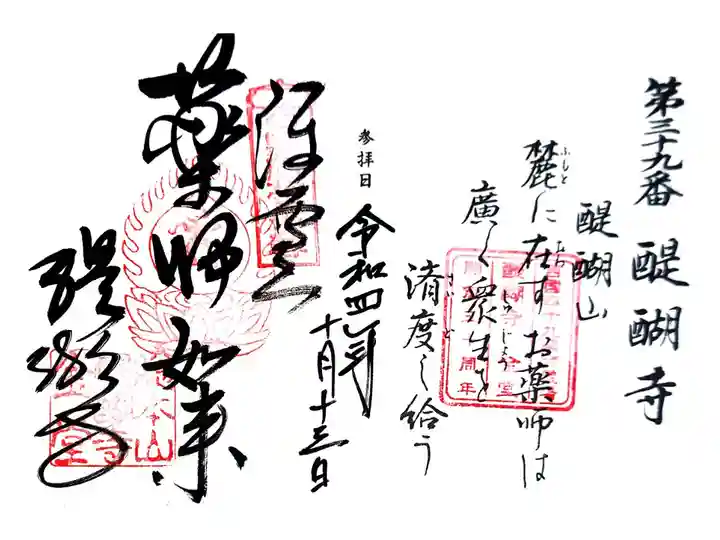 第三十九番 醍醐寺
醍醐山
麓に在す お薬師は
廣く衆生を
済度し給う
参拝日 令和四年
十月十三日
薬師如来
醍醐寺